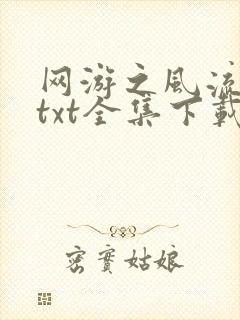 网游之风流
txt全集下载
密实姑娘